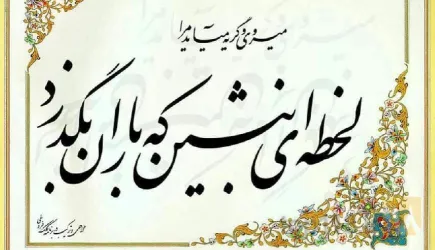 میروی و گریه میآید مرا
لحظه‌ای بنشین که باران بگذرد